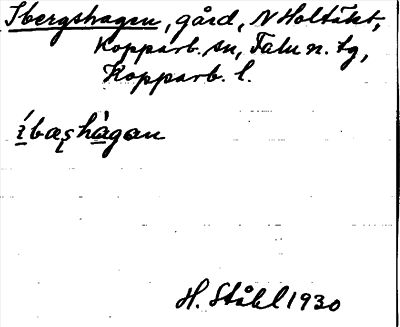 Ibergshagen, gård, N Holtäkt,
Kopparb. sn, Falu n. tg,
Kopparb. l.
íbæʂhàgan
H. Ståhl 1930